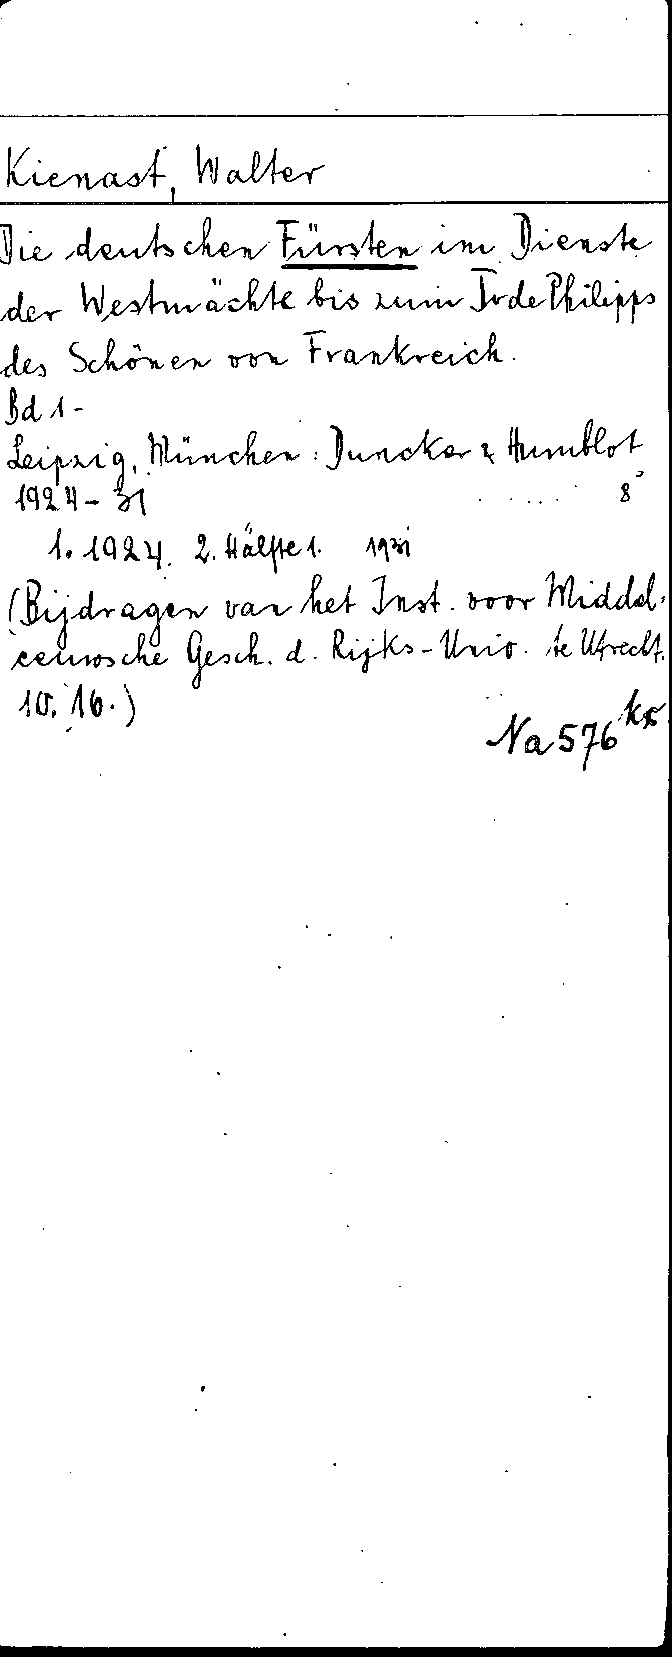 Kienast, Walter
Die deutschen Fürsten im Dienste
der Westmächte bis zum Tode Philipps
des Schönen von Frankreich.
Bd 1-
Leipzig, München: Duncker & Humblot
1924-31 8°
1. 1924. 2. Hälfte 1. 1931
(Bijdragen van het Inst. voor Middel-
eeuwsche Gesch. d. Rijks-Univ. te Utrecht.
10. 16.)
Na 576